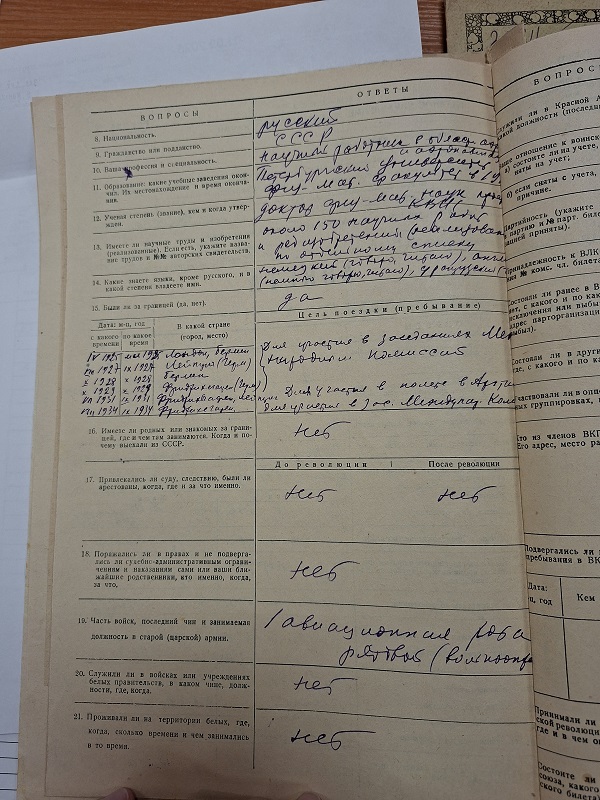 ВОПРОСЫ
ОТВЕТЫ
8. Национальность.
русский
9. Гражданство или подданство.
СССР
10. Ваша профессия и специальность.
научный работник в област
11. Образование: какие учебные заведения окон-
чил. Их местонахождение и время оконча-
ния.
Петербургский университет
физ-мат. факультет в
12. Ученая степень (звание), кем и когда утвер-
жден.
доктор физ-мат. наук
13. Имеете ли научные труды и изобретения
(реализованные). Если есть, укажите назва-
ние трудов и №№ авторских свидетельств.
около 150 научных работ
и
по отдельному списку
14. Какие знаете языки, кроме русского, и в
какой степени владеете ими.
немецкий (говорю, читаю),
(немного говорю, читаю), французский
15. Были ли за границей (да, нет).
да
Дата: м-ц, год
с какого времени
по какое время
В какой стране
(город, место)
Цель поездки (пребывание)
IV 1925
Лондон, Берлин
Для участия в заседаниях Меж
VII 1927
1927
Лейпциг (Герм)
народной Комиссии
X 1928
X 1928
Берлин
X 1929
X 1929
Фридрихсгафен (Герм)
VII 1931
1931
Фридрихсгафен,
Для участия в полете в Аркти
VIII 1934
IX 1934
Фридрихсгафен
для участия в зас. Международ.
16. Имеете ли родных или знакомых за грани-
цей, где и чем там занимаются. Когда и по-
чему выехали из СССР.
Нет
До революции
После революции
17. Привлекались ли суду, следствию, были ли
арестованы, когда, где и за что именно.
нет
нет
18. Поражались ли в правах и не подверга-
лись ли судебно-административным ограни-
чениям и наказаниям сами или ваши бли-
жайшие родственники, кто именно, когда,
за что.
нет
19. Часть войск, последний чин и занимаемая
должность в старой (царской) армии.
1 авиационная рота
рядовой (вольноопр
20. Служили ли в войсках или учреждениях
белых правительств, в каком чине, долж-
ности, где, когда.
нет
21. Проживали ли на территории белых, где,
когда, сколько времени и чем занимались
в то время.
нет
ВОПРОС
Служили ли в Красной А
должности (последн
аше отношение к воинск
а) состоите ли на учете,
на учет;
б) если сняты с учета,
причине.
Партийность (укажите
партию и № парт. биле
цией приняты).
Принадлежность к ВЛК
№ комс. чл. билета
Состояли ли ранее в В
с какого и по как
исключения или выбы
адрес парторганизаци
выбыл).
Состояли ли в други
где, с какого и по ка
Участвовали ли в опп
ных группировках,
Кто из членов ВКП
Его адрес, место раб
Подвергались ли
пребывания в ВК
Дата:
ц, год
Кем
Принимали ли
ской революци
где и в чем о
Состоите ли
союза, какого
ского билета)